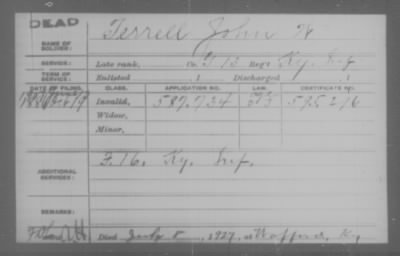 DEAD
Terrell John W
NAME OF SOLDIER:
SERVICE: Late rank, Co. G 13 Reg't Ky. Inf
TERM OF SERVICE: Enlisted , 1 Discharged , 1
DATE OF FILING. CLASS. APPLICATION NO. LAW. CERTIFICATE NO.
Invalid, 587,734 595,216
Widow,
Minor,
ADDITIONAL SERVICES: F. 16. Ky. Inf.
REMARKS:
Died July 8, 1927, at Wofford, Ky